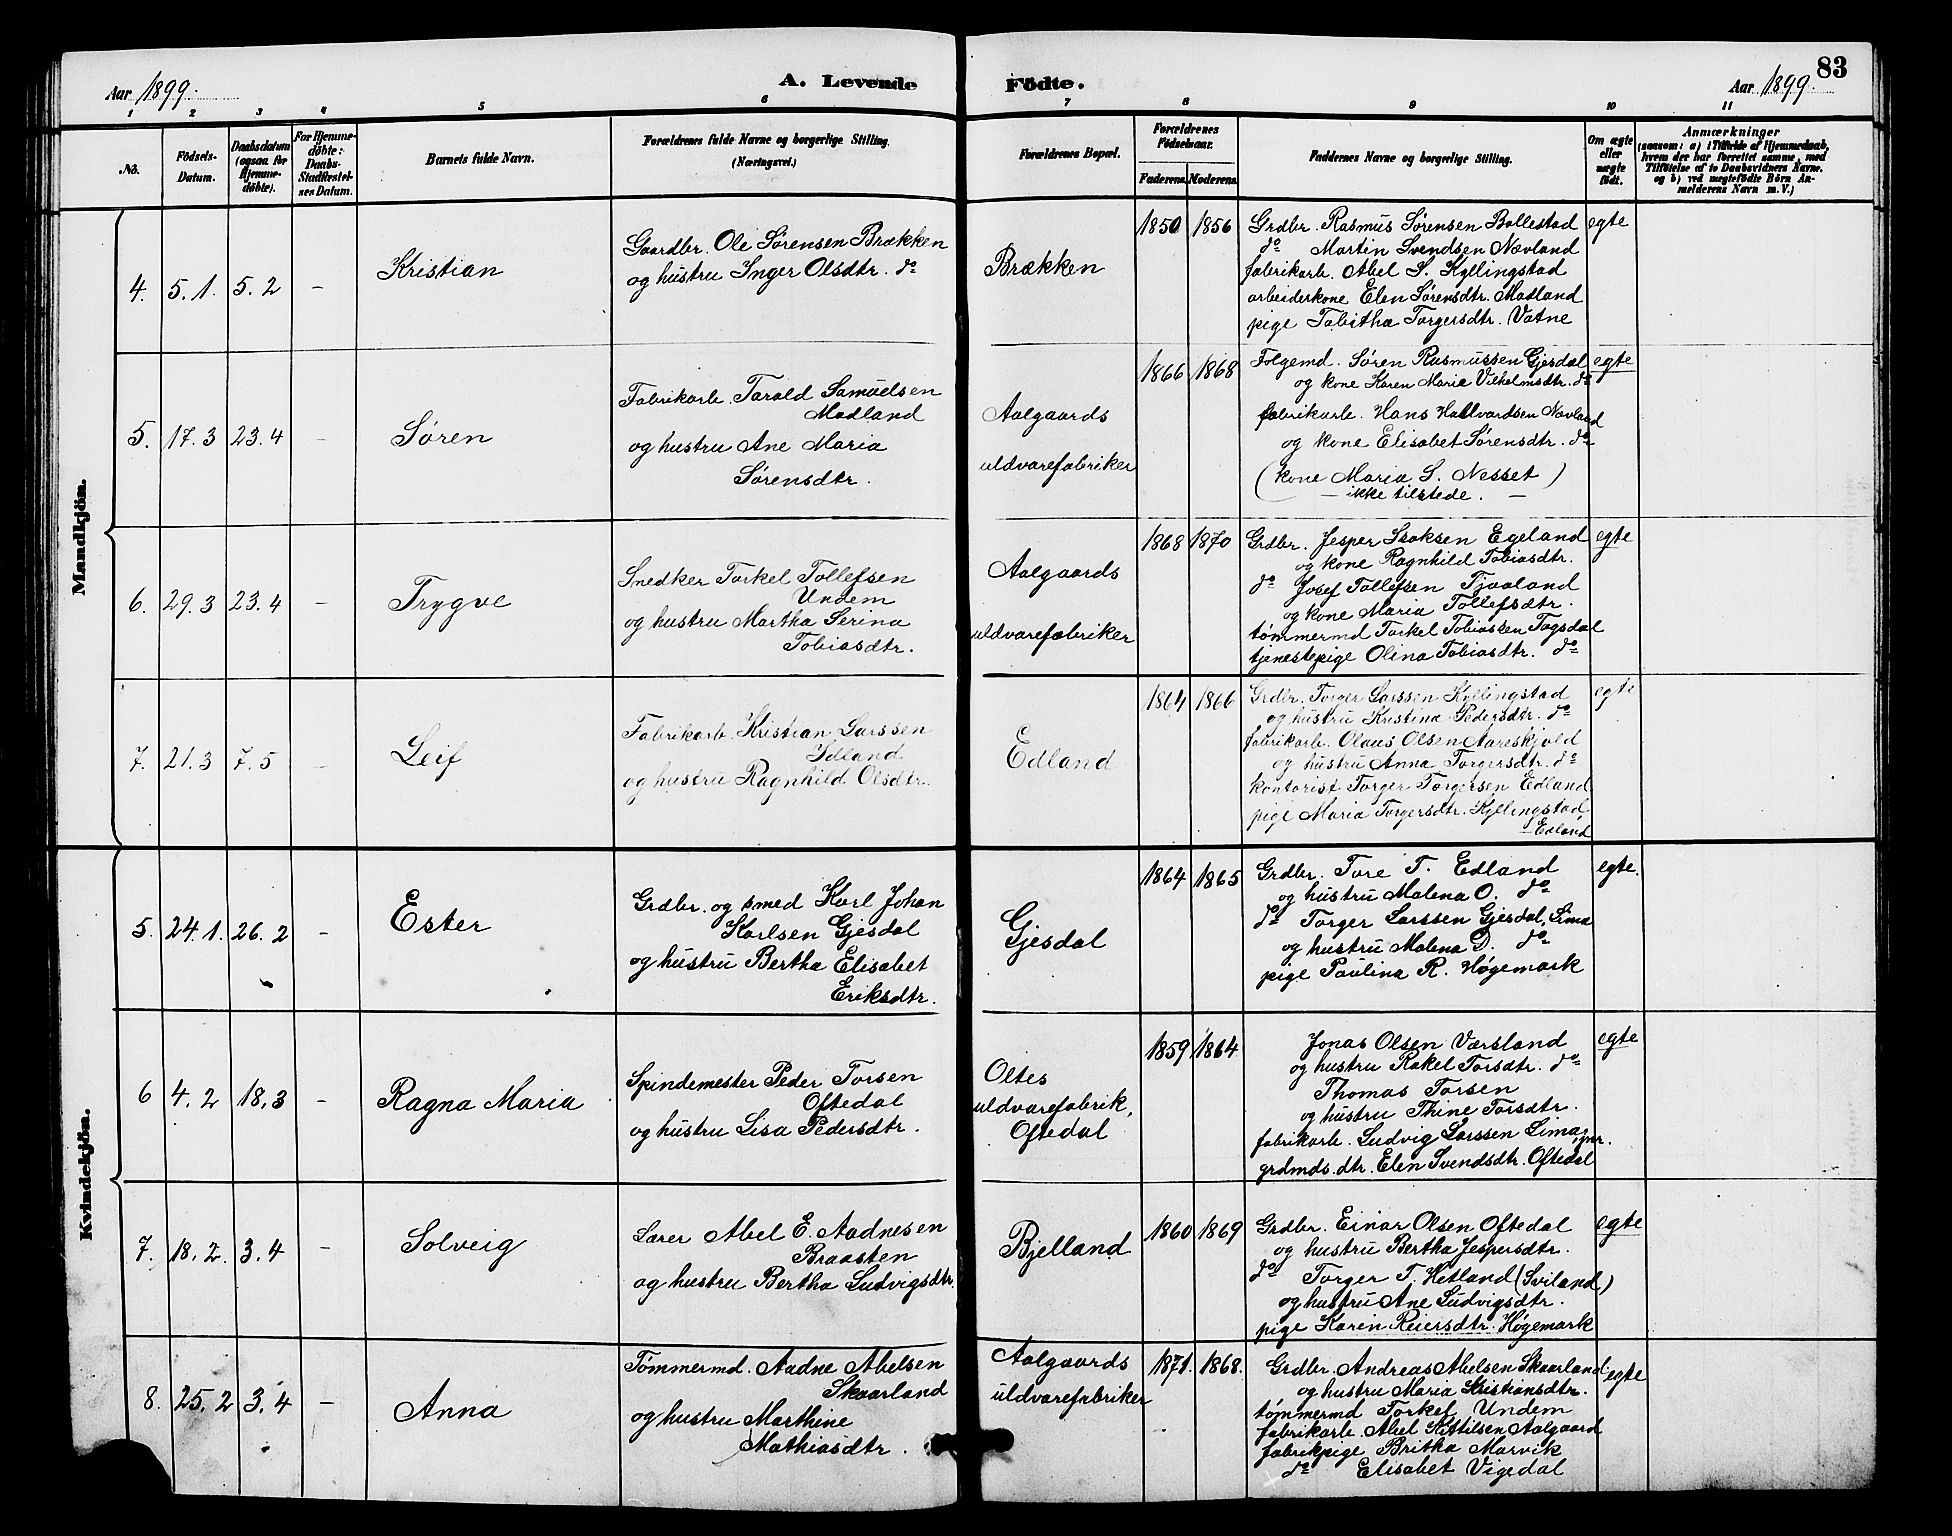 83
Aar 1899.
A. Levende Födte.
Aar 1899.
1 2 3 4 5 6 7 8 9 10 11
No.
Födsels-Datum.
Daabsdatum (ogsaa for Hjemmedöbte).
For Hjemmedöbte: Daabs-Stadfæstelses Datum.
Barnets fulde Navn.
Forældrenes fulde Navne og borgerlige Stilling. (Næringsvei.)
Forældrenes Bopæl.
Forældrenes Födselsaar.
Faderens. Moderens.
Faddernes Navne og borgerlige Stilling.
Om ægte eller uægte födt.
Anmærkninger
(saasom: a) i Tilfælde af Hjemmedaab,
hvem der har forrettet samme, med
Tilföielse af to Daabsvidners Navne.
og b) ved uægtefödte Börn An-
melderens Navn m. V.)
Mandkjön.
4. 5.1. 5.2 –
Kristian
Gaardbr. Ole Sørensen Brækken
og hustru Inger Olsdtr. do
Brækken
1850 1856
Grdbr. Rasmus Sørensen Bollestad
do Martin Svendsen Nævland
fabrikarb. Abel S. Kyllingstad
arbeiderkone Elen Sørensdtr. Madland
pige Tabitha Torgersdtr. Vatne
egte
5. 17.3 23.4 –
Søren
Fabrikarb. Tarald Samuelsen
Madland
og hustru Ane Maria
Sørensdtr.
Aalgaards
uldvarefabriker
1866 1868
Folgemd. Søren Rasmussen Gjesdal
og kone Karen Maria Vilhelmsdtr. do
fabrikarb. Hans Hallvardsen Nævland
og kone Elisabet Sørensdtr. do
(kone Maria S. Nesset)
– ikke tilstede. –
egte
6. 29.3 23.4 –
Trygve
Snedker Torkel Tollefsen
Undem
og hustru Martha Serina
Tobiasdtr.
Aalgaards
uldvarefabriker
1868 1870
Grdbr. Jesper Isaksen Egeland
og kone Ragnhild Tobiasdtr.
do Josef Tollefsen Tjaaland
og kone Maria Tollefsdtr.
tømmermd Torkel Tobiassen Togsdal
tjenestepige Olina Tobiasdtr. do
egte
7. 21.3 7.5 –
Leif
Fabrikarb. Kristian Larssen
Ydland
og hustru Ragnhild Olsdtr.
Edland
1864 1866
Grdbr. Torger Larssen Kyllingstad
og hustru Kristina Pedersdtr. do
fabrikarb. Olaus Olsen Aareskjold
og hustru Anna Torgersdtr. do
kontorist Torger Torgersen Edland
pige Maria Torgersdtr. Kyllingstad,
Edland
egte
Kvindekjön.
5. 24.1. 26.2 –
Ester
Grdbr. og smed Karl Johan
Karlsen Gjesdal
og hustru Bertha Elisabet
Eriksdtr.
Gjesdal
1864 1865
Grdbr. Tore T. Edland
og hustru Malena O. do
do Torger Larssen Gjesdal, Lima
og hustru Malena D. do
pige Paulina R. Høgemark
egte.
6 4.2 18.3 –
Ragna Maria
Spindemester Peder Torsen
Oftedal
og hustru Lisa Pedersdtr.
Oltes
uldvarefabrik,
Oftedal
1859 1864
Jonas Olsen Værsland
og hustru Rakel Torsdtr. do
Thomas Torsen
og hustru Thine Torsdtr.
fabrikarb. Ludvig Larssen Lima,
grdmds. dtr. Elen Svendsdtr. Oftedal
egte
7. 18.2. 3.4 –
Solveig
Lærer Abel E. Aadnesen
Braasten
og hustru Bertha Ludvigsdtr.
Bjelland
1860 1869
Grdbr. Einar Olsen Oftedal
og hustru Bertha Jespersdtr.
do Torger T. Hetland (Sviland)
og hustru Ane Ludvigsdtr.
pige Karen Reiersdtr. Høgemark
egte
8. 25.2 3.4 –
Anna
Tømmermd. Aadne Abelsen
Skaarland
og hustru Marthine
Mathiasdtr.
Aalgaards
uldvarefabriker
1871. 1868.
Grdbr. Andreas Abelsen Skaarland
og hustru Maria Kristiansdtr.
tømmermd Torkel Undem
fabrikarb. Abel Kittilsen Aalgaard
fabrikpige Britha Marvik
do Elisabet Vigedal
egte